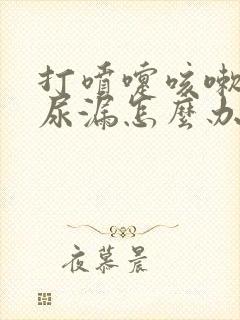 打噴嚏咳嗽
尿漏怎麼办
夜慕晨